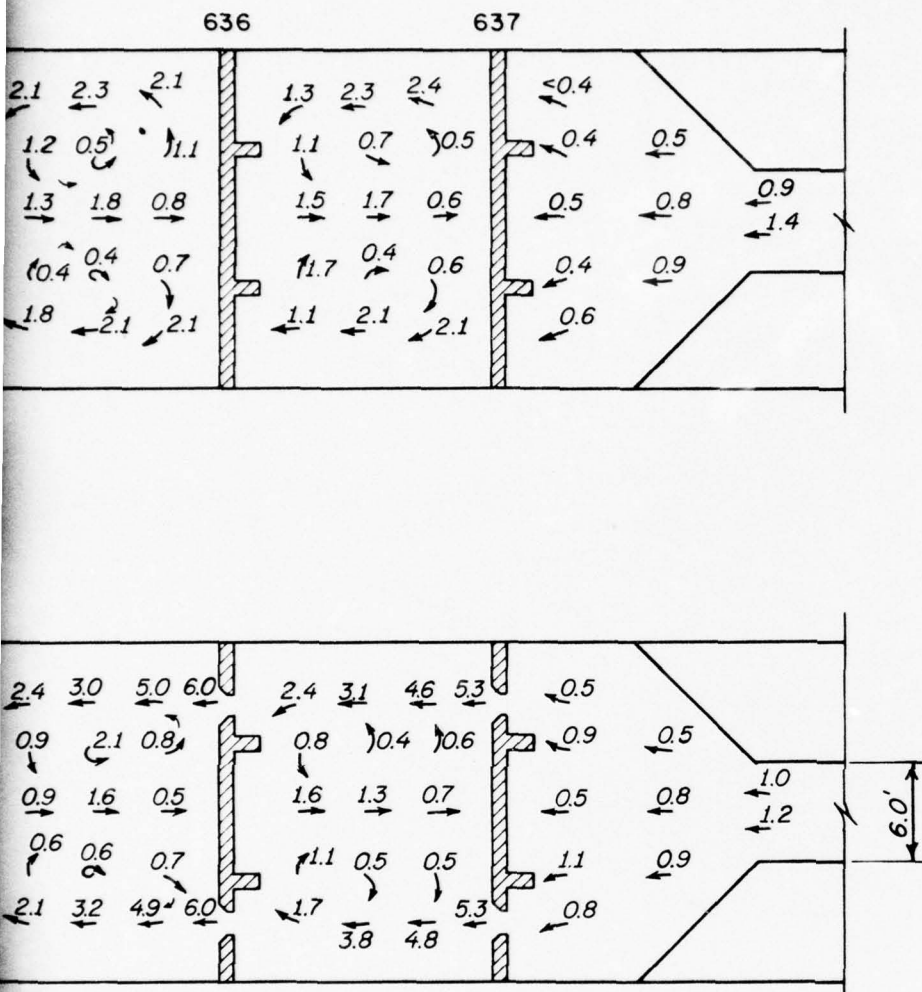 636 637
2.1 2.3 2.1 1.3 2.3 2.4 <0.4
1.2 0.5 1.1 1.1 0.7 0.5 0.4 0.5
1.3 1.8 0.8 1.5 1.7 0.6 0.5 0.8 0.9
1.4
0.4 0.4 0.7 1.7 0.4 0.6 0.4 0.9
1.8 2.1 2.1 1.1 2.1 2.1 0.6
2.4 3.0 5.0 6.0 2.4 3.1 4.6 5.3 0.5
0.9 2.1 0.8 0.8 0.4 0.6 0.9 0.5
1.0
0.9 1.6 0.5 1.6 1.3 0.7 0.5 0.8 1.2
6.0'
0.6 0.6 0.7 1.1 0.5 0.5 1.1 0.9
2.1 3.2 4.9 6.0 1.7 5.3 0.8
3.8 4.8